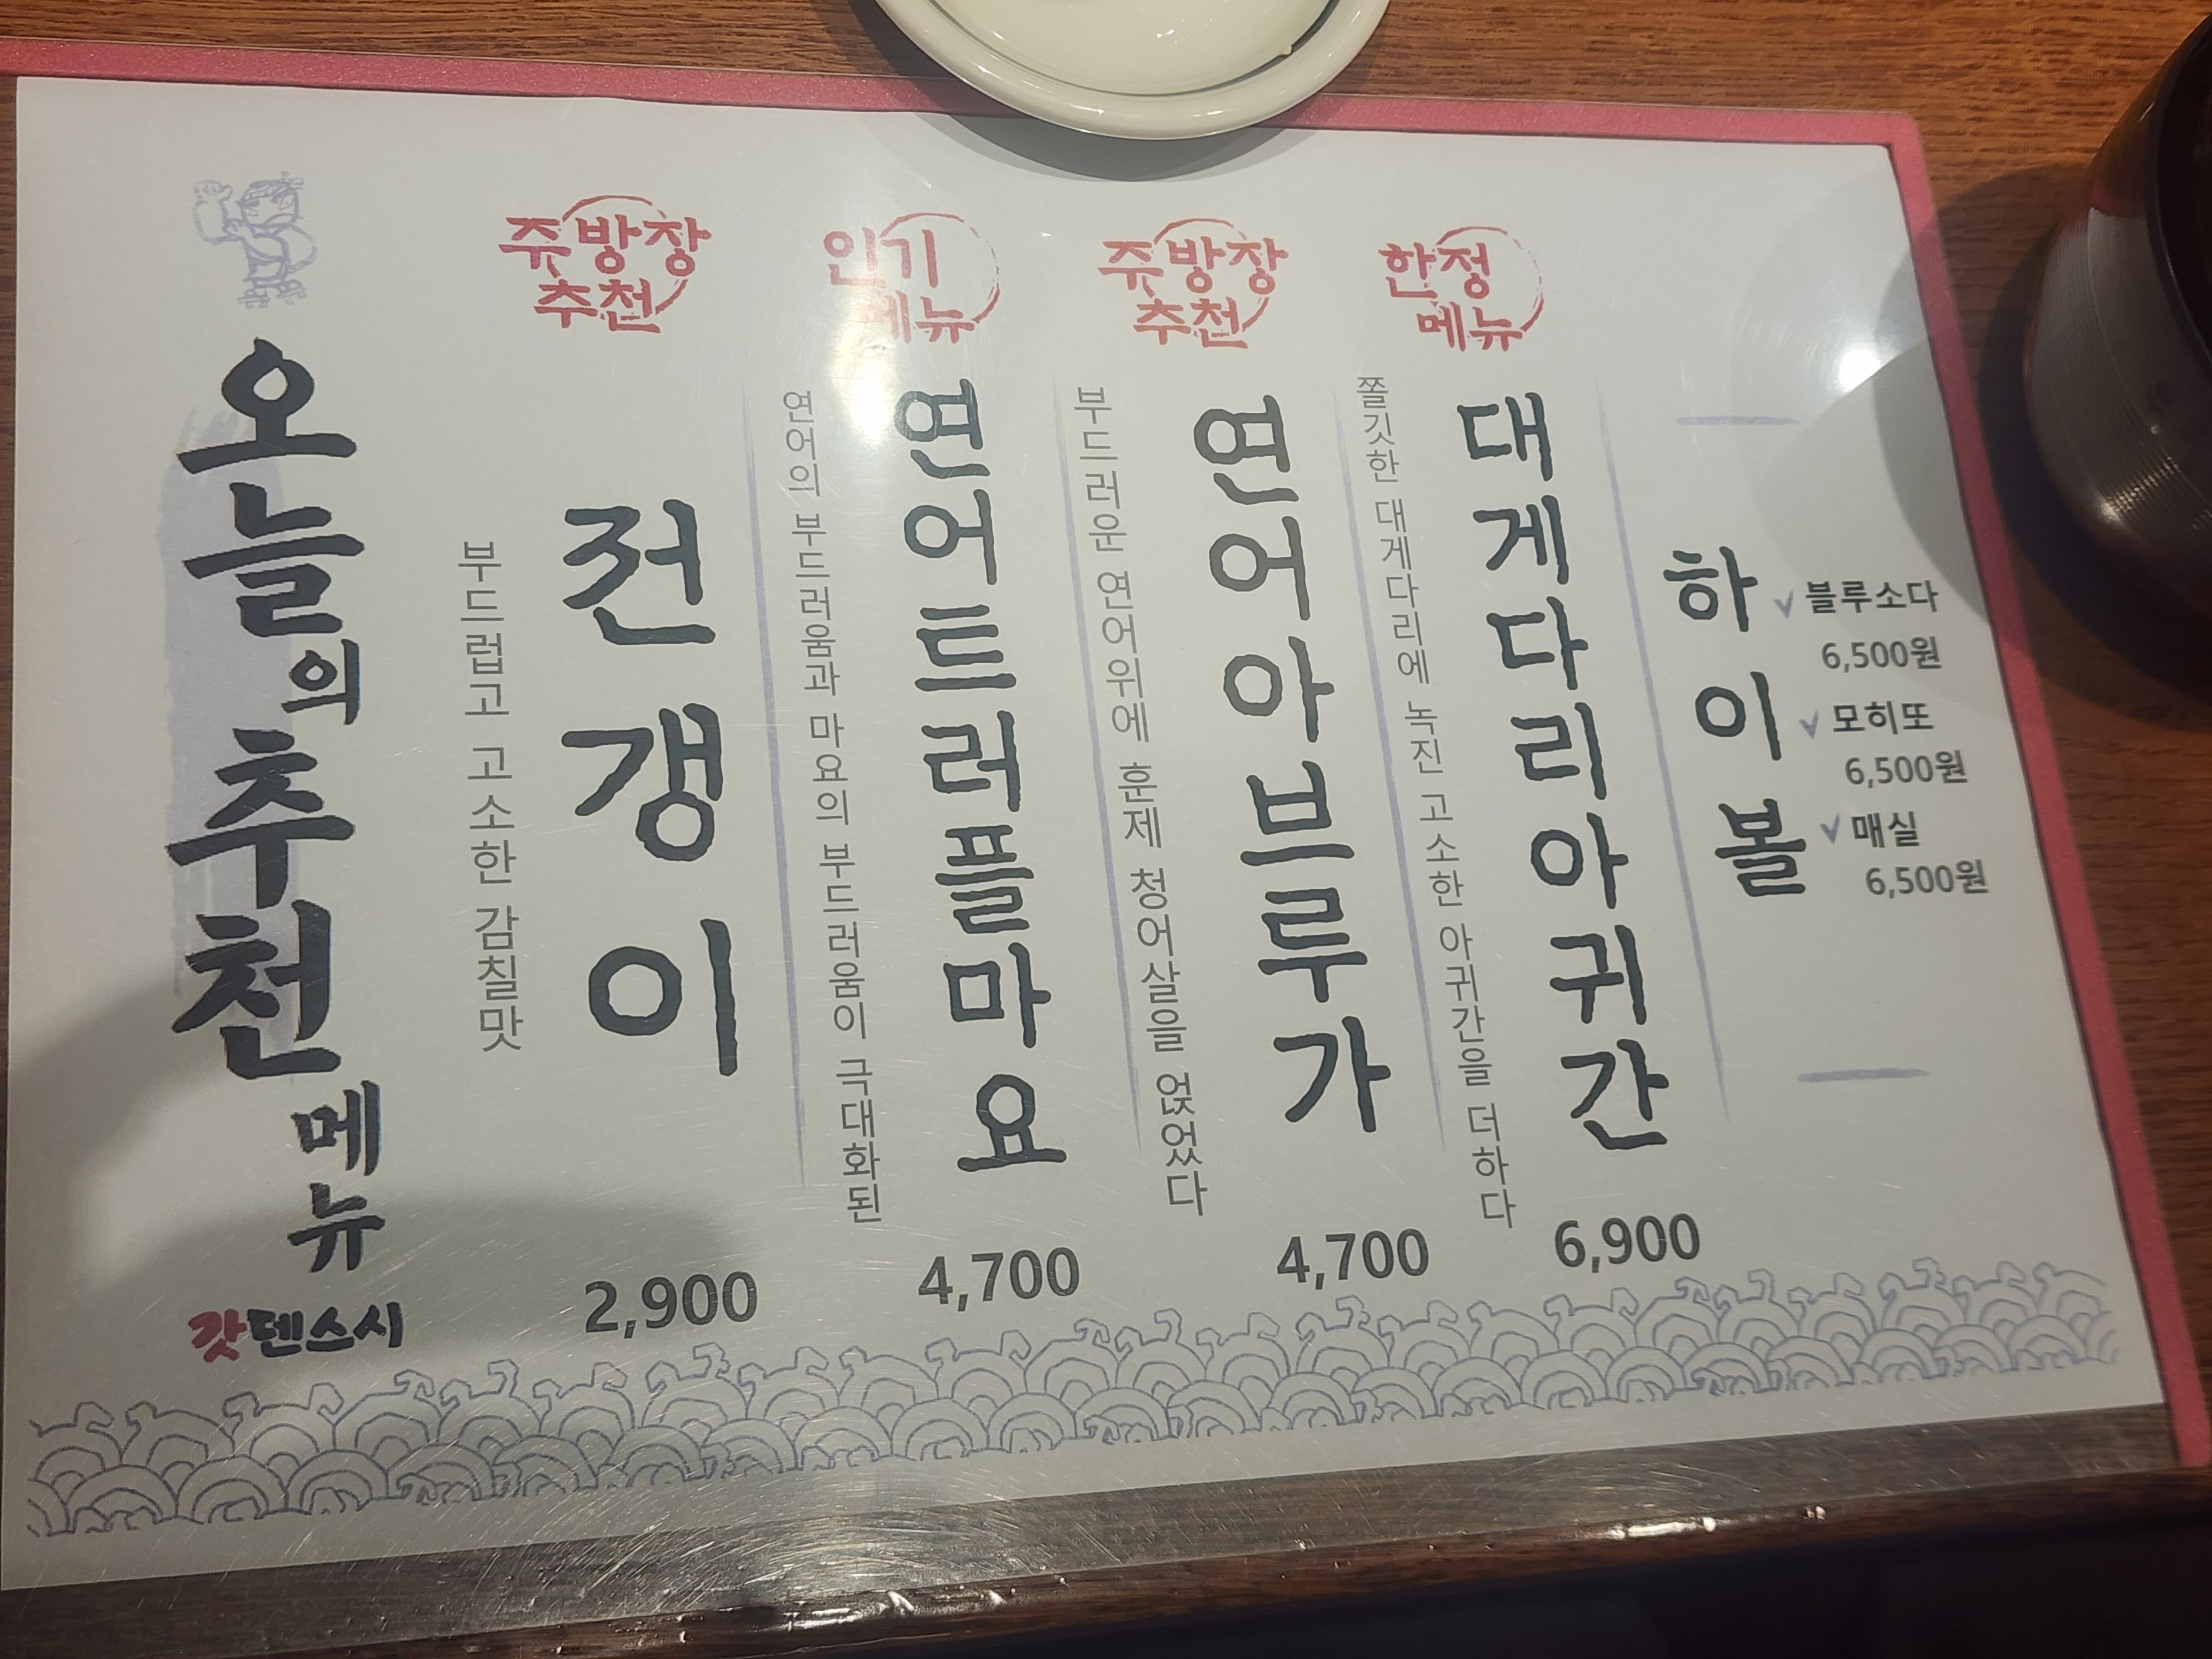 오늘의 추천 메뉴
갓덴스시
주방장
추천
전갱이
부드럽고 고소한 감칠맛
2,900
인기
메뉴
연어트러플마요
연어의 부드러움과 마요의 부드러움이 극대화된
4,700
주방장
추천
연어아브루가
부드러운 연어위에 훈제 청어살을 얹었다
4,700
한정
메뉴
대게다리아귀간
쫄깃한 대게다리에 녹진 고소한 아귀간을 더하다
6,900
하이볼
블루소다
6,500원
모히또
6,500원
매실
6,500원